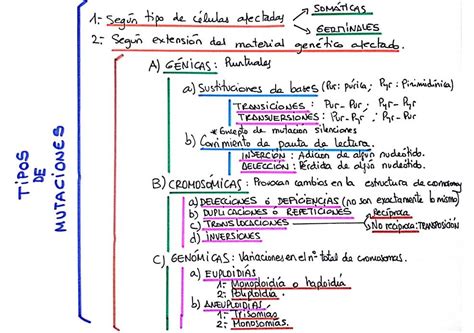 TIPOS
DE
MUTACIONES
1- Según tipo de células afectadas
SOMÁTICAS
GERMINALES
2- Según extensión del material genético afectado.
A) GÉNICAS: Puntuales
a) Sustituciones de bases (Pur: púrica; Pyr: Pirimidínica)
TRANSICIONES: Pur-Pur; Pyr-Pyr
TRANSVERSIONES: Pur-Pyr; Pyr-Pur
*Concepto de mutación silenciosa
b) Corrimiento de pauta de lectura.
INSERCIÓN: Adición de algún nucleótido.
DELECCIÓN: Pérdida de algún nucleótido.
B) CROMOSÓMICAS: Provocan cambios en la estructura de cromosomas
a) DELECIONES ó DEFICIENCIAS (no son exactamente lo mismo)
b) DUPLICACIONES ó REPETICIONES
c) TRANSLOCACIONES
Recíproca
No recíproca: TRANSPOSICIÓN
d) INVERSIONES
C) GENÓMICAS: Variaciones en el nº total de cromosomas.
a) EUPLOIDÍAS
1- Monoploidía o haploidía
2- Poliploidía.
b) ANEUPLOIDÍAS
1- Trisomías
2- Monosomías.